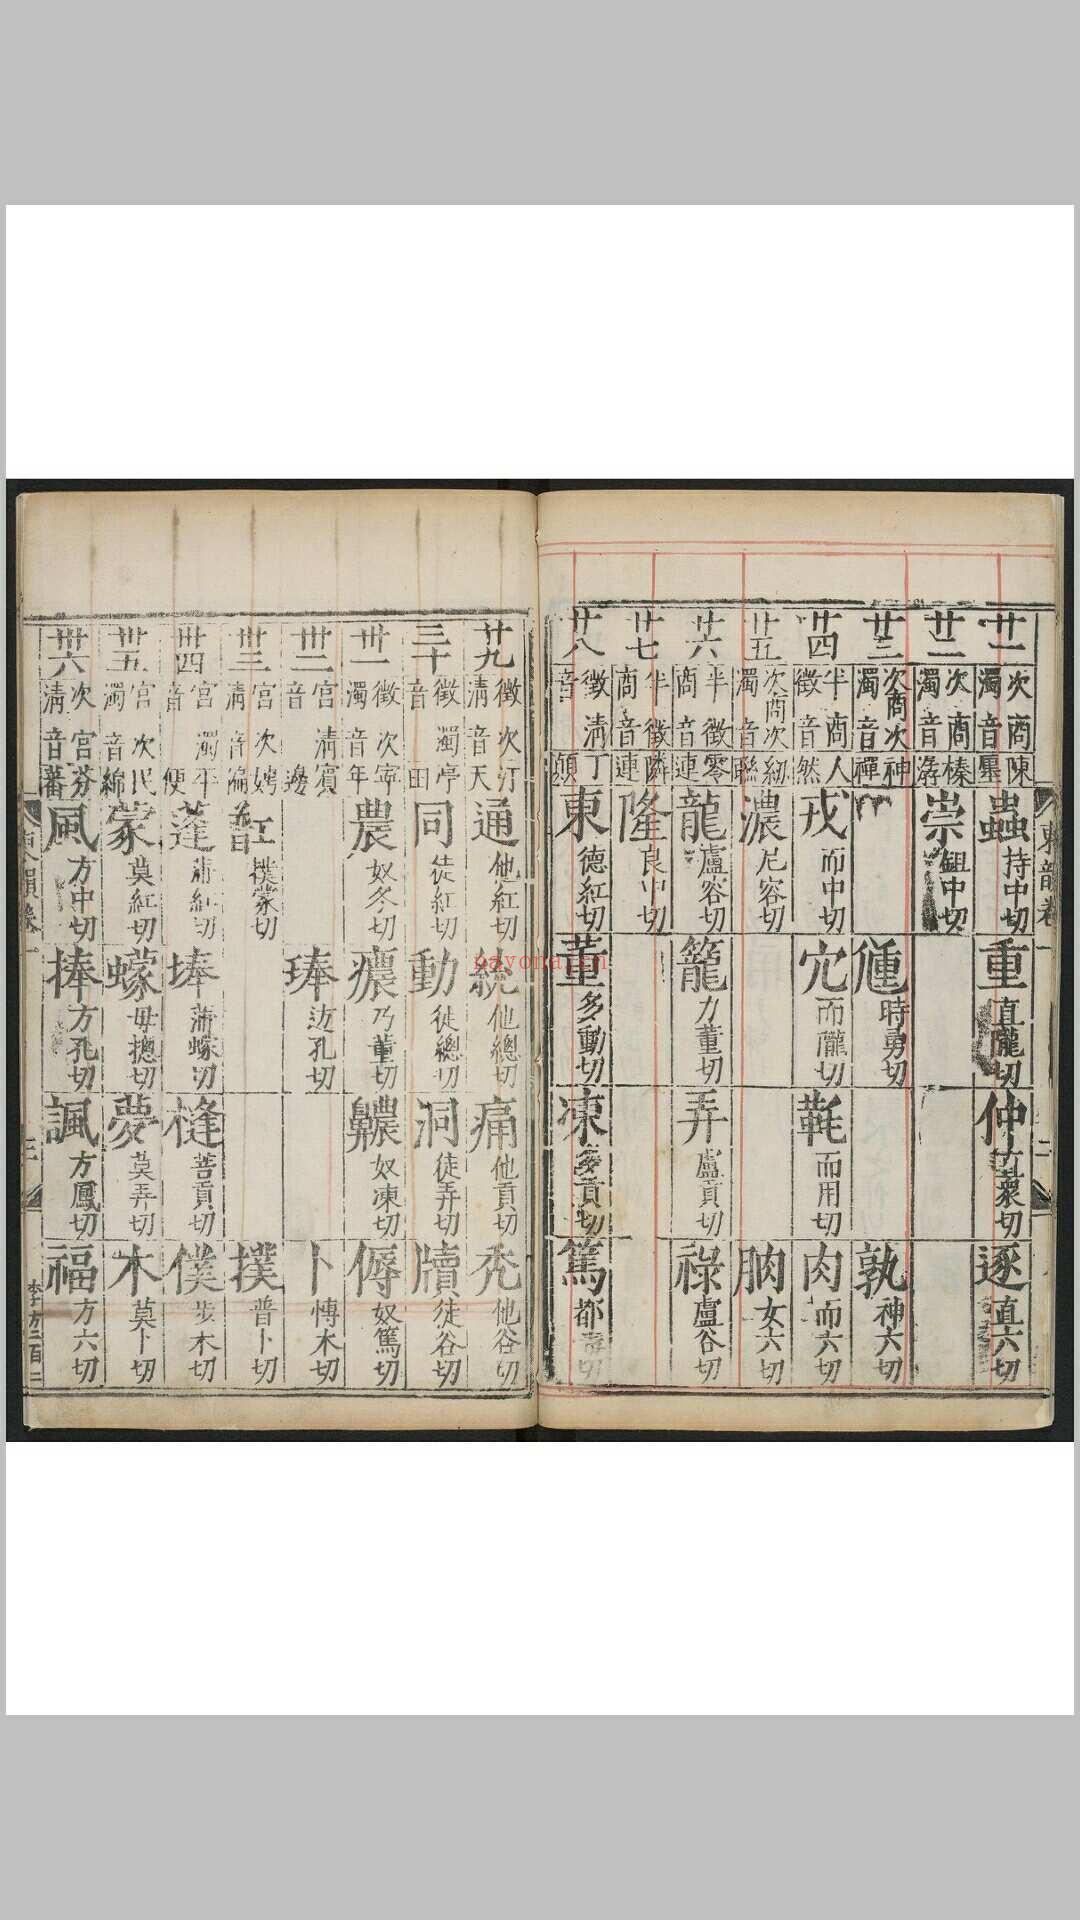 東韻卷一
廿一
次商次濁音 陳廛
蟲 持中切
重 直隴切
仲 直衆切
逐 直六切
廿二
次商濁音 榛潺
崇 鉏中切
廿三
次商次濁音 神禪
尰 時勇切
孰 神六切
廿四
半商徵音 人然
戎 而中切
宂 而隴切
㲨 而用切
肉 而六切
廿五
次商次濁音 紉聯
濃 尼容切
朒 女六切
廿六
半徵商音 零連
龍 盧容切
籠 力董切
弄 盧貢切
祿 盧谷切
廿七
半徵商音 隣連
隆 良中切
廿八
徵清音 丁顛
東 德紅切
董 多動切
凍 多貢切
篤 都毒切
廿九
徵次清音 汀天
通 他紅切
統 他總切
痛 他貢切
禿 他谷切
三十
徵濁音 亭田
同 徒紅切
動 徒總切
洞 徒弄切
牘 徒谷切
卅一
徵次濁音 寧年
農 奴冬切
癑 乃董切
齈 奴凍切
傉 奴篤切
卅二
宮清音 賓邊
琫 邊孔切
卜 博木切
卅三
宮次清音 娉偏
撲蒙切
撲 普卜切
卅四
宮濁音 平便
蓬 蒲紅切
埲 蒲蠓切
槰 菩貢切
僕 步木切
卅五
宮次濁音 民綿
蒙 莫紅切
蠓 毋摠切
夢 莫弄切
木 莫卜切
卅六
次宮清音 芬蕃
風 方中切
捧 方孔切
諷 方鳳切
福 方六切
東韻卷一
李方二百二
nayona.cn